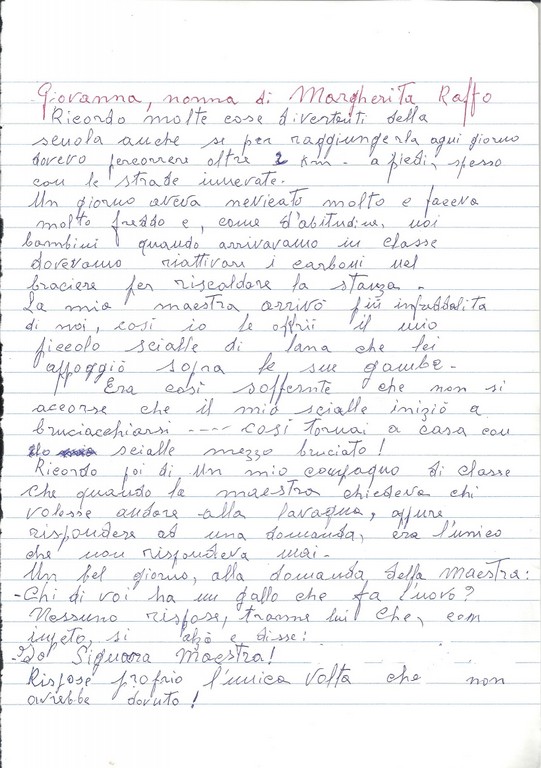 Giovanna, nonna di Margherita Raffo
Ricordo molte cose divertenti della
scuola anche se per raggiungerla ogni giorno
dovevo percorrere oltre 2 km - a piedi, spesso
con le strade innevate.
Un giorno aveva nevicato molto e faceva
molto freddo e, come d'abitudine, noi
bambini quando arrivavamo in classe
dovevamo riattivare i carboni nel
braciere per riscaldare la stanza -
La mia maestra arrivò più infreddolita
di noi, così io le offrii il mio
piccolo scialle di lana che lei
appoggiò sopra le sue gambe -
Era così sofferente che non si
accorse che il mio scialle iniziò a
bruciacchiarsi ---- così tornai a casa con
lo scialle mezzo bruciato!
Ricordo poi di un mio compagno di classe
che quando la maestra chiedeva chi
volesse andare alla lavagna, oppure
rispondere ad una domanda, era l'unico
che non rispondeva mai -
Un bel giorno, alla domanda della maestra:
- Chi di voi ha un gallo che fa l'uovo?
Nessuno rispose, tranne lui che, con
impeto, si alzò e disse:
- Io Signora Maestra!
Rispose proprio l'unica volta che non
avrebbe dovuto!